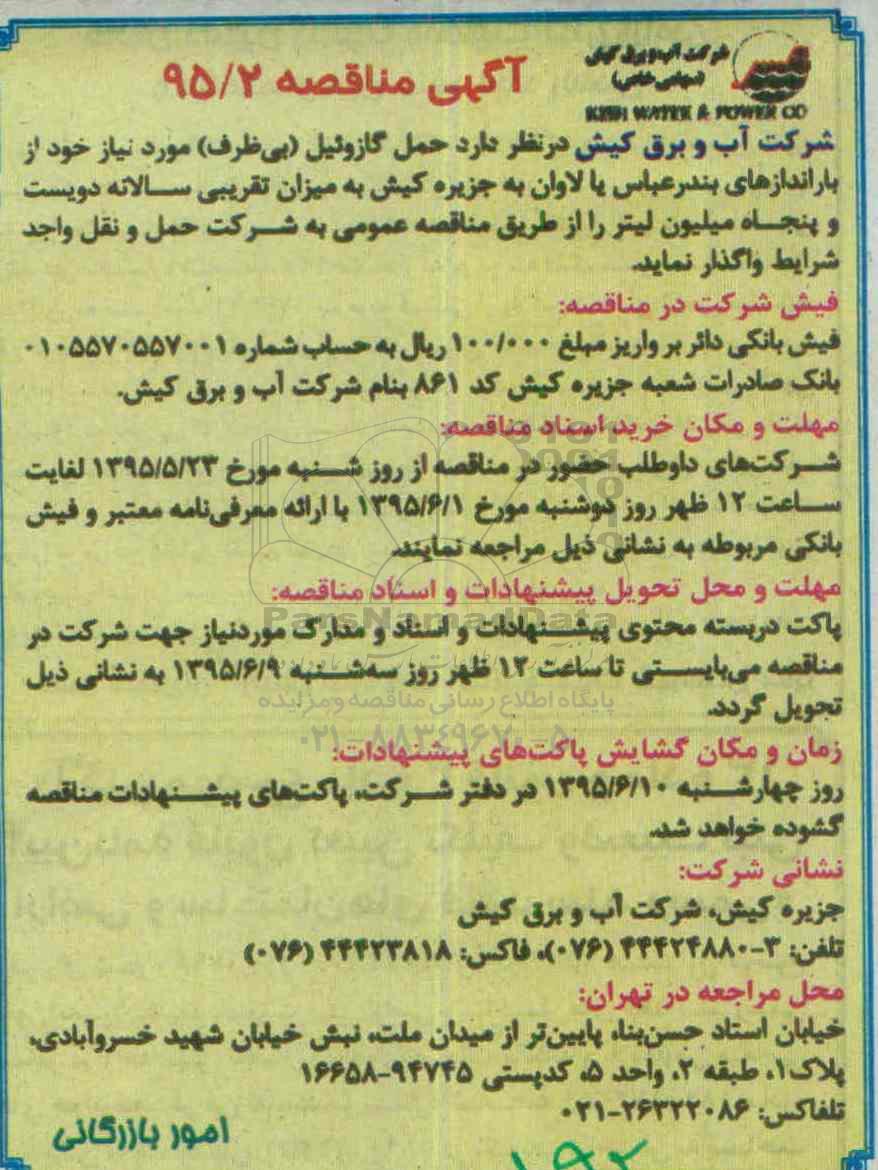 شرکت آب و برق کیش
(سهامی خاص)
KISH WATER & POWER CO
آگهی مناقصه ۹۵/۲
شرکت آب و برق کیش درنظر دارد حمل گازوئیل (بی‌ظرف) مورد نیاز خود از
باراندازهای بندرعباس یا لاوان به جزیره کیش به میزان تقریبی سالانه دویست
و پنجاه میلیون لیتر را از طریق مناقصه عمومی به شرکت حمل و نقل واجد
شرایط واگذار نماید.
فیش شرکت در مناقصه:
فیش بانکی دائر بر واریز مبلغ ۱۰۰/۰۰۰ ریال به حساب شماره ۰۱۰۵۵۷۰۵۵۷۰۰۱
بانک صادرات شعبه جزیره کیش کد ۸۶۱ بنام شرکت آب و برق کیش.
مهلت و مکان خرید اسناد مناقصه:
شرکت‌های داوطلب حضور در مناقصه از روز شنبه مورخ ۱۳۹۵/۵/۲۳ لغایت
ساعت ۱۲ ظهر روز دوشنبه مورخ ۱۳۹۵/۶/۱ با ارائه معرفی‌نامه معتبر و فیش
بانکی مربوطه به نشانی ذیل مراجعه نمایند.
مهلت و محل تحویل پیشنهادات و اسناد مناقصه:
پاکت دربسته محتوی پیشنهادات و اسناد و مدارک موردنیاز جهت شرکت در
مناقصه می‌بایستی تا ساعت ۱۲ ظهر روز سه‌شنبه ۱۳۹۵/۶/۹ به نشانی ذیل
تحویل گردد.
ParsNamadData
پایگاه اطلاع رسانی مناقصه و مزایده
۰۲۱-۸۸۳۴۹۶۷۰-۵
زمان و مکان گشایش پاکت‌های پیشنهادات:
روز چهارشنبه ۱۳۹۵/۶/۱۰ در دفتر شرکت، پاکت‌های پیشنهادات مناقصه
گشوده خواهد شد.
نشانی شرکت:
جزیره کیش، شرکت آب و برق کیش
تلفن: ۳-۴۴۴۲۴۸۸۰ (۰۷۶)، فاکس: ۴۴۴۲۳۸۱۸ (۰۷۶)
محل مراجعه در تهران:
خیابان استاد حسن‌بنا، پایین‌تر از میدان ملت، نبش خیابان شهید خسروآبادی،
پلاک۱، طبقه ۲، واحد ۵، کدپستی ۹۴۷۴۵-۱۶۶۵۸
تلفاکس: ۲۶۳۲۲۰۸۶-۰۲۱
امور بازرگانی
۱۹۲